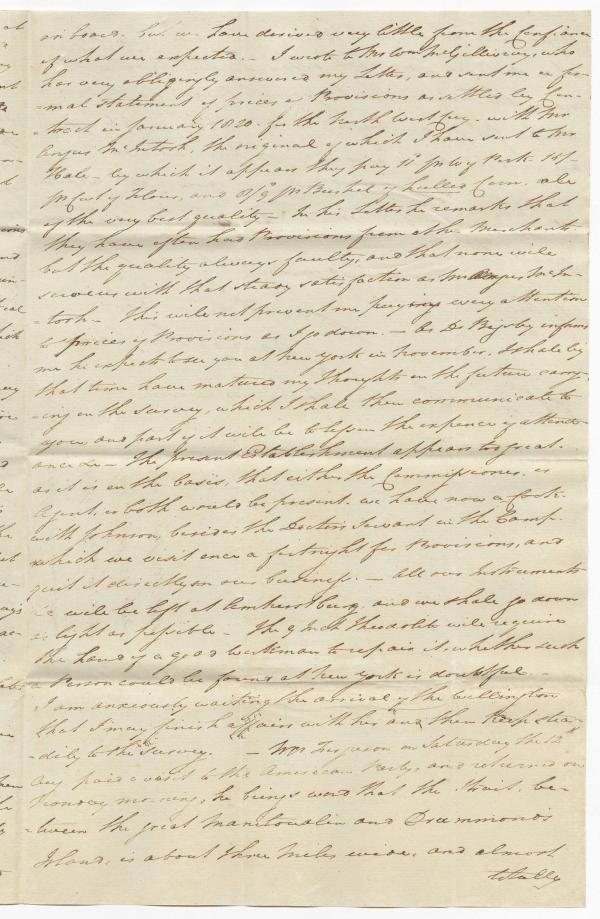 on board. but we have derived very little from the Confiance
of what we expected. — I wrote to Mr Wm McGillivray, who
has very obligingly answered my Letter, and sent me a for-
-mal statement of prices of Provisions as settled by Con-
-tract in January 1820. for the North West Coy. with Mr
Angus McIntosh, the original of which I have sent to Mr
Hale — by which it appears they pay
p Cwt of Flour, and p Bushel of hulled Corn. all
of the very best quality — In his Letter he remarks that
they have often had Provisions from other Merchants
but the quality always faulty, and that none will
serve us with that steady satisfaction as Mr Angus McIn-
-tosh — This will not prevent me paying every attention
to prices of Provisions as I go down. — As Dr Bigsby informs
me he expects to see you at New York in November, I shall by
that time have matured my thoughts on the future carry-
-ing on the Survey, which I shall then communicate to
you, and part of it will be to lessen the expence of attend-
ance &c — The present Establishment appears too great.
as it is on the basis, that either the Commissioner, or
Agent, or both would be present. we have now a Cook
with Johnson, besides the Doctors Servant in the Camp.
which we visit once a fortnight for Provisions, and
quit it directly on our business. — All our Instruments
&c will be left at Amherstburg, and we shall go down
as light as possible — The 9 Inch Theodolite will require
the hand of a good workman to repair it, whether such
a Person could be found at New York is doubtful —
I am anxiously waiting the arrival of the Wellington
that I may finish affairs with her and then keep stea-
-dily to the Survey. — Mr Ferguson on Saturday the 12th
Aug paid a visit to the American Party, and returned on
Monday morning, he brings word that the Strait, be-
-tween the great Manitoualin and Drummond's
Island, is about three Miles wide, and almost
totally